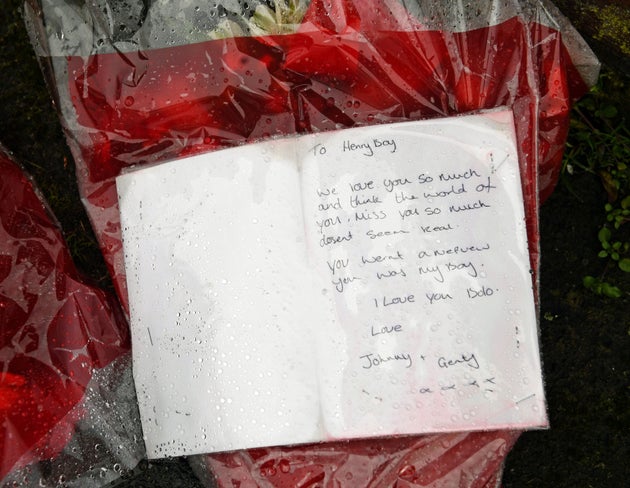 To Henry Boy
We love you so much
and think the world of
you. Miss you so much
dosent seem real.
you wernt a nephew
you was my Boy.
I Love you Dolo.
Love
Johnny + Genty
x x x x